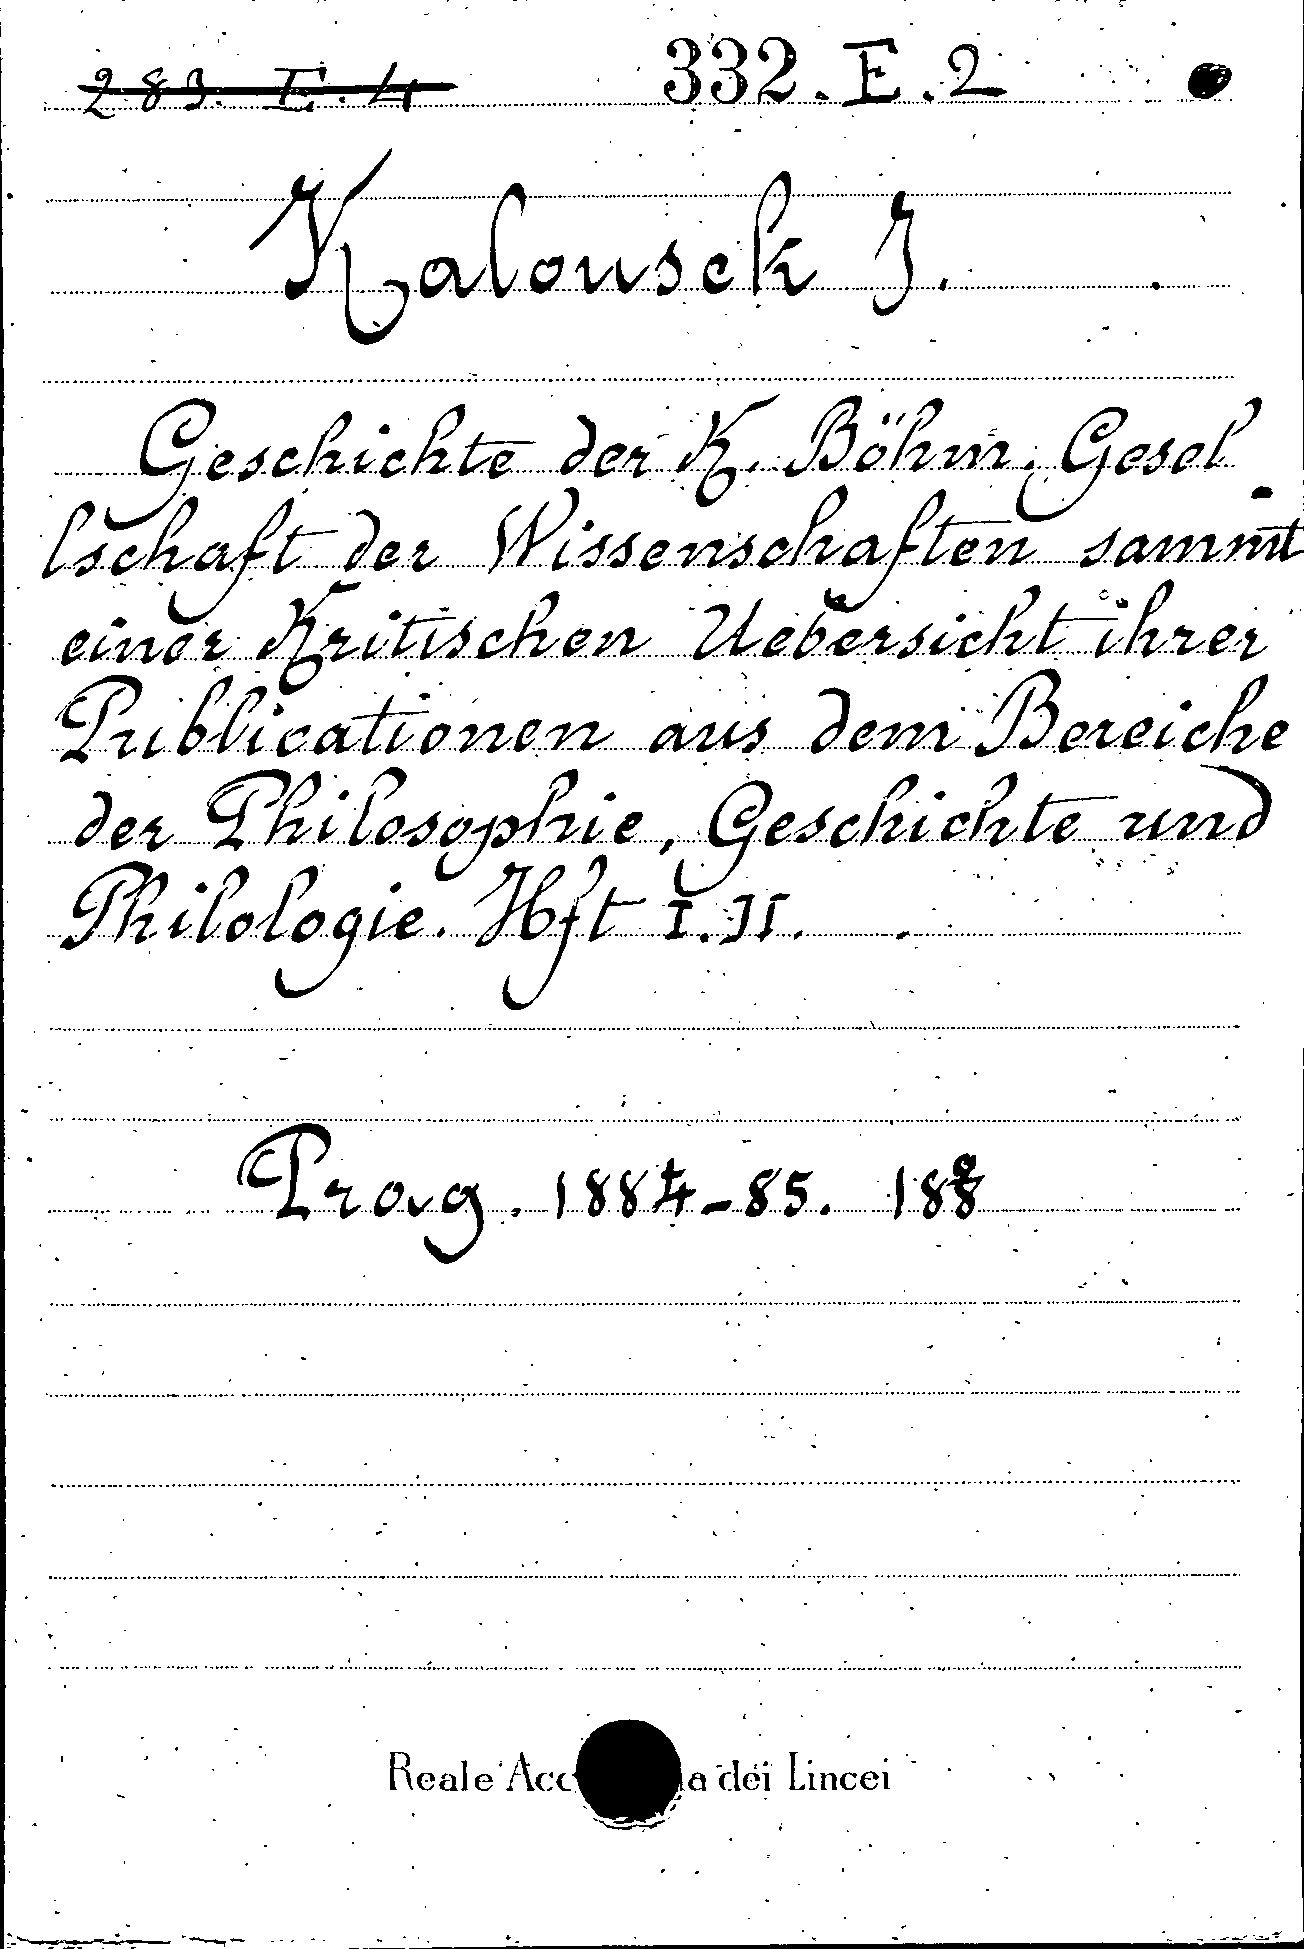 283. E. 4 332. E. 2
Kalousek J.
Geschichte der K. Böhm. Gesel
lschaft der Wissenschaften sammt
einer Kritischen Uebersicht ihrer
Publicationen aus dem Bereiche
der Philosophie, Geschichte und
Philologie. Hft I. II.
Prag. 1884-85. 188
Reale dei Lincei